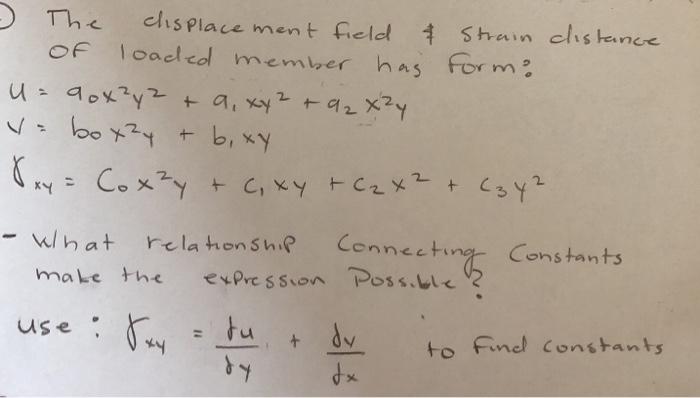 The displacement field & strain distance
OF loaded member has form:
u = a₀x²y² + a₁xy² + a₂x²y
v = b₀x²y + b₁xy
γxy = C₀x²y + C₁xy + C₂x² + C₃y²
- What relationship Connecting Constants
make the expression Possible?
use: γxy = ∂u/∂y + ∂v/∂x to find constants